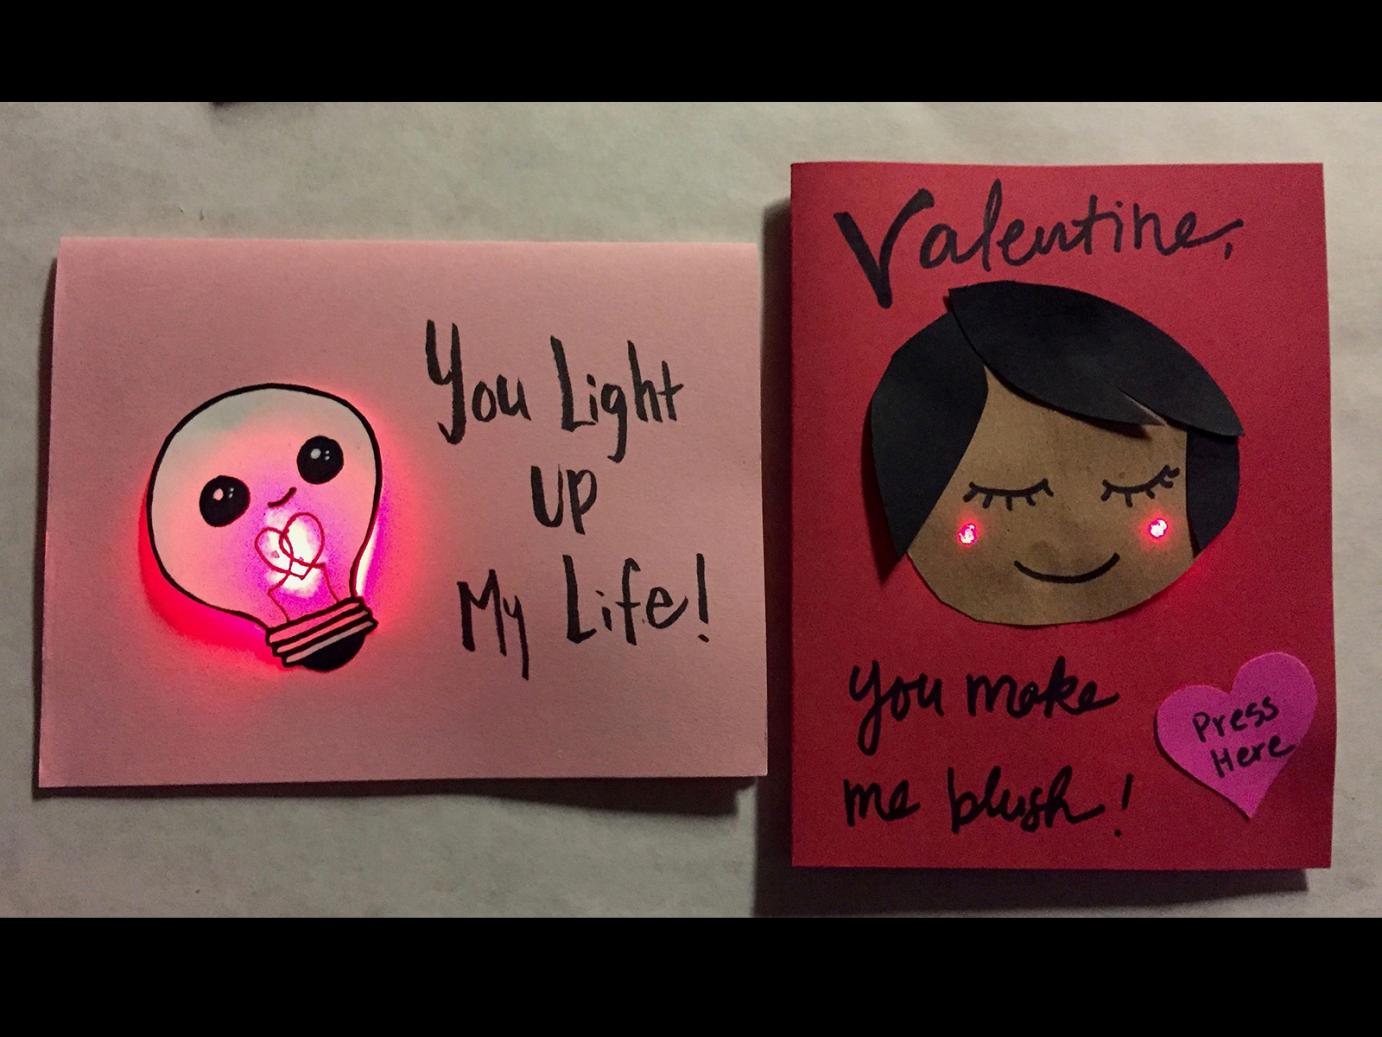 You Light
UP
My Life!
Valentine,
you make
me blush!
Press
Here